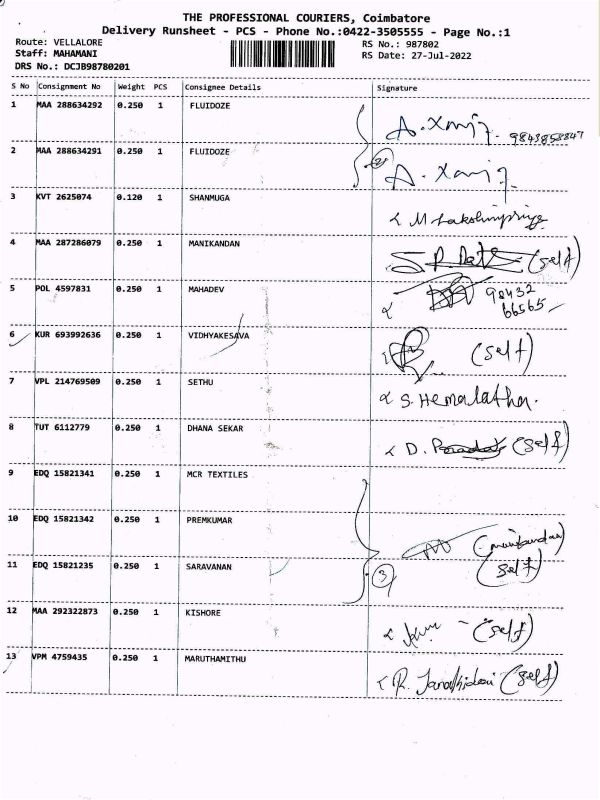 THE PROFESSIONAL COURIERS, Coimbatore
Delivery Runsheet - PCS - Phone No.:0422-3505555 - Page No.:1
Route: VELLALORE
Staff: MAHAMANI
DRS No.: DCJB98780201
RS No.: 987802
RS Date: 27-Jul-2022
S No Consignment No Weight PCS Consignee Details Signature
1 MAA 288634292 0.250 1 FLUIDOZE
2 MAA 288634291 0.250 1 FLUIDOZE
3 KVT 2625074 0.120 1 SHANMUGA
4 MAA 287286079 0.250 1 MANIKANDAN (self)
5 POL 4597831 0.250 1 MAHADEV 98432
66565
6 KUR 693992636 0.250 1 VIDHYAKESAVA (self)
7 VPL 214769509 0.250 1 SETHU S. Hemalatha.
8 TUT 6112779 0.250 1 DHANA SEKAR D. (self)
9 EDQ 15821341 0.250 1 MCR TEXTILES
10 EDQ 15821342 0.250 1 PREMKUMAR
11 EDQ 15821235 0.250 1 SARAVANAN 3 (self)
12 MAA 292322873 0.250 1 KISHORE (self)
13 VPM 4759435 0.250 1 MARUTHAMITHU R. (self)